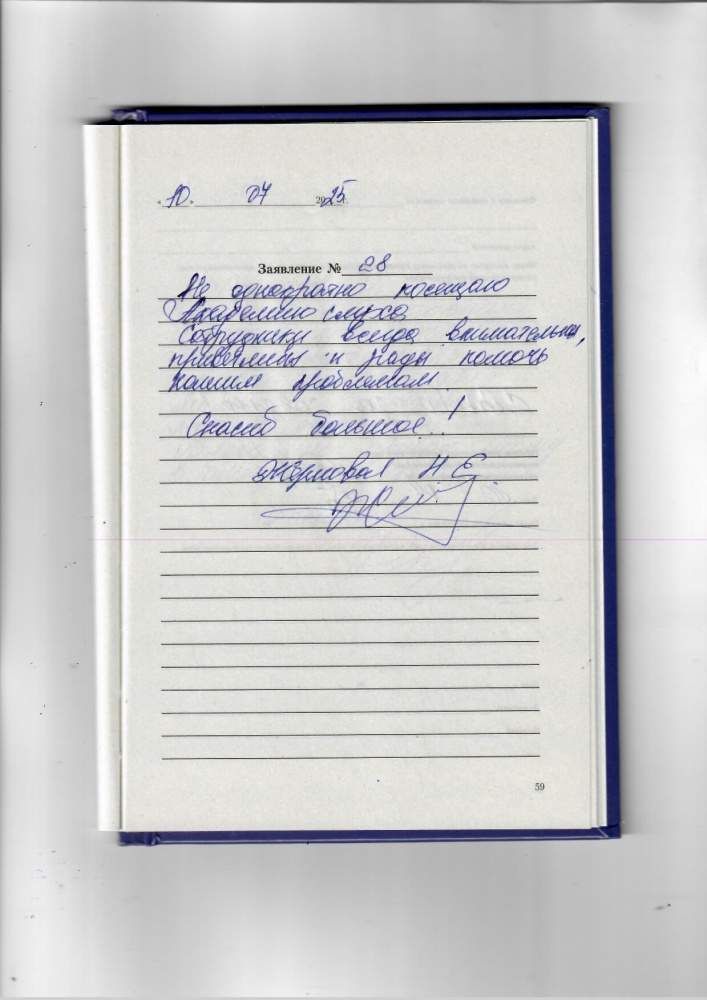 « 10 » 07 2025
Заявление № 28
Не однократно посещаю
Академию слуха.
Сотрудники всегда внимательны,
приветливы и рады помочь
нашим проблемам.
Спасибо большое!
Н. Е.
59